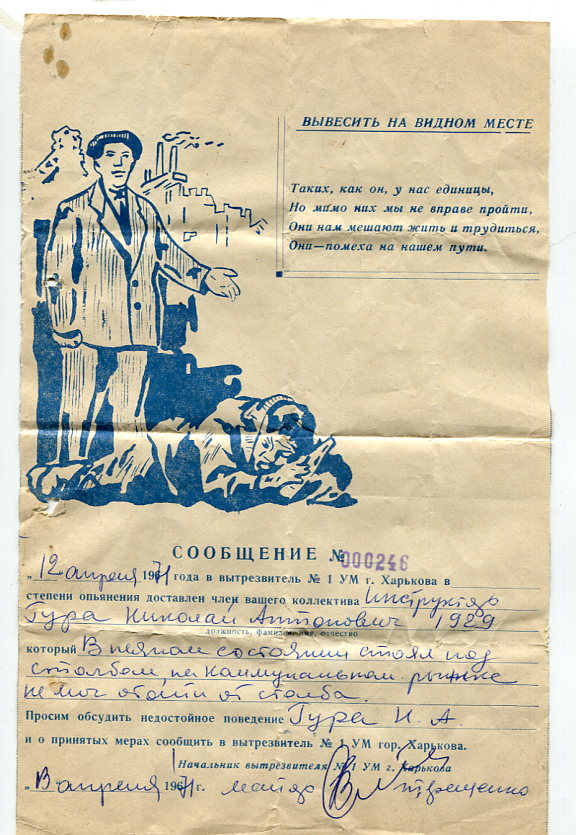 ВЫВЕСИТЬ НА ВИДНОМ МЕСТЕ
Таких, как он, у нас единицы,
Но мимо них мы не вправе пройти,
Они нам мешают жить и трудиться,
Они—помеха на нашем пути.
СООБЩЕНИЕ № 000246
„12 апреля 1971 года в вытрезвитель № 1 УМ г. Харькова в
степени опьянения доставлен член вашего коллектива Инструктор
Гура Николай Антонович 1929
должность, фамилия, имя, отчество
который В пьяном состоянии стоял под
столбом, на коммунальном рынке
не мог отойти от столба.
Просим обсудить недостойное поведение Гура Н. А.
и о принятых мерах сообщить в вытрезвитель № 1 УМ гор. Харькова.
Начальник вытрезвителя № 1 УМ г. Харькова
апреля 1971 г. майор